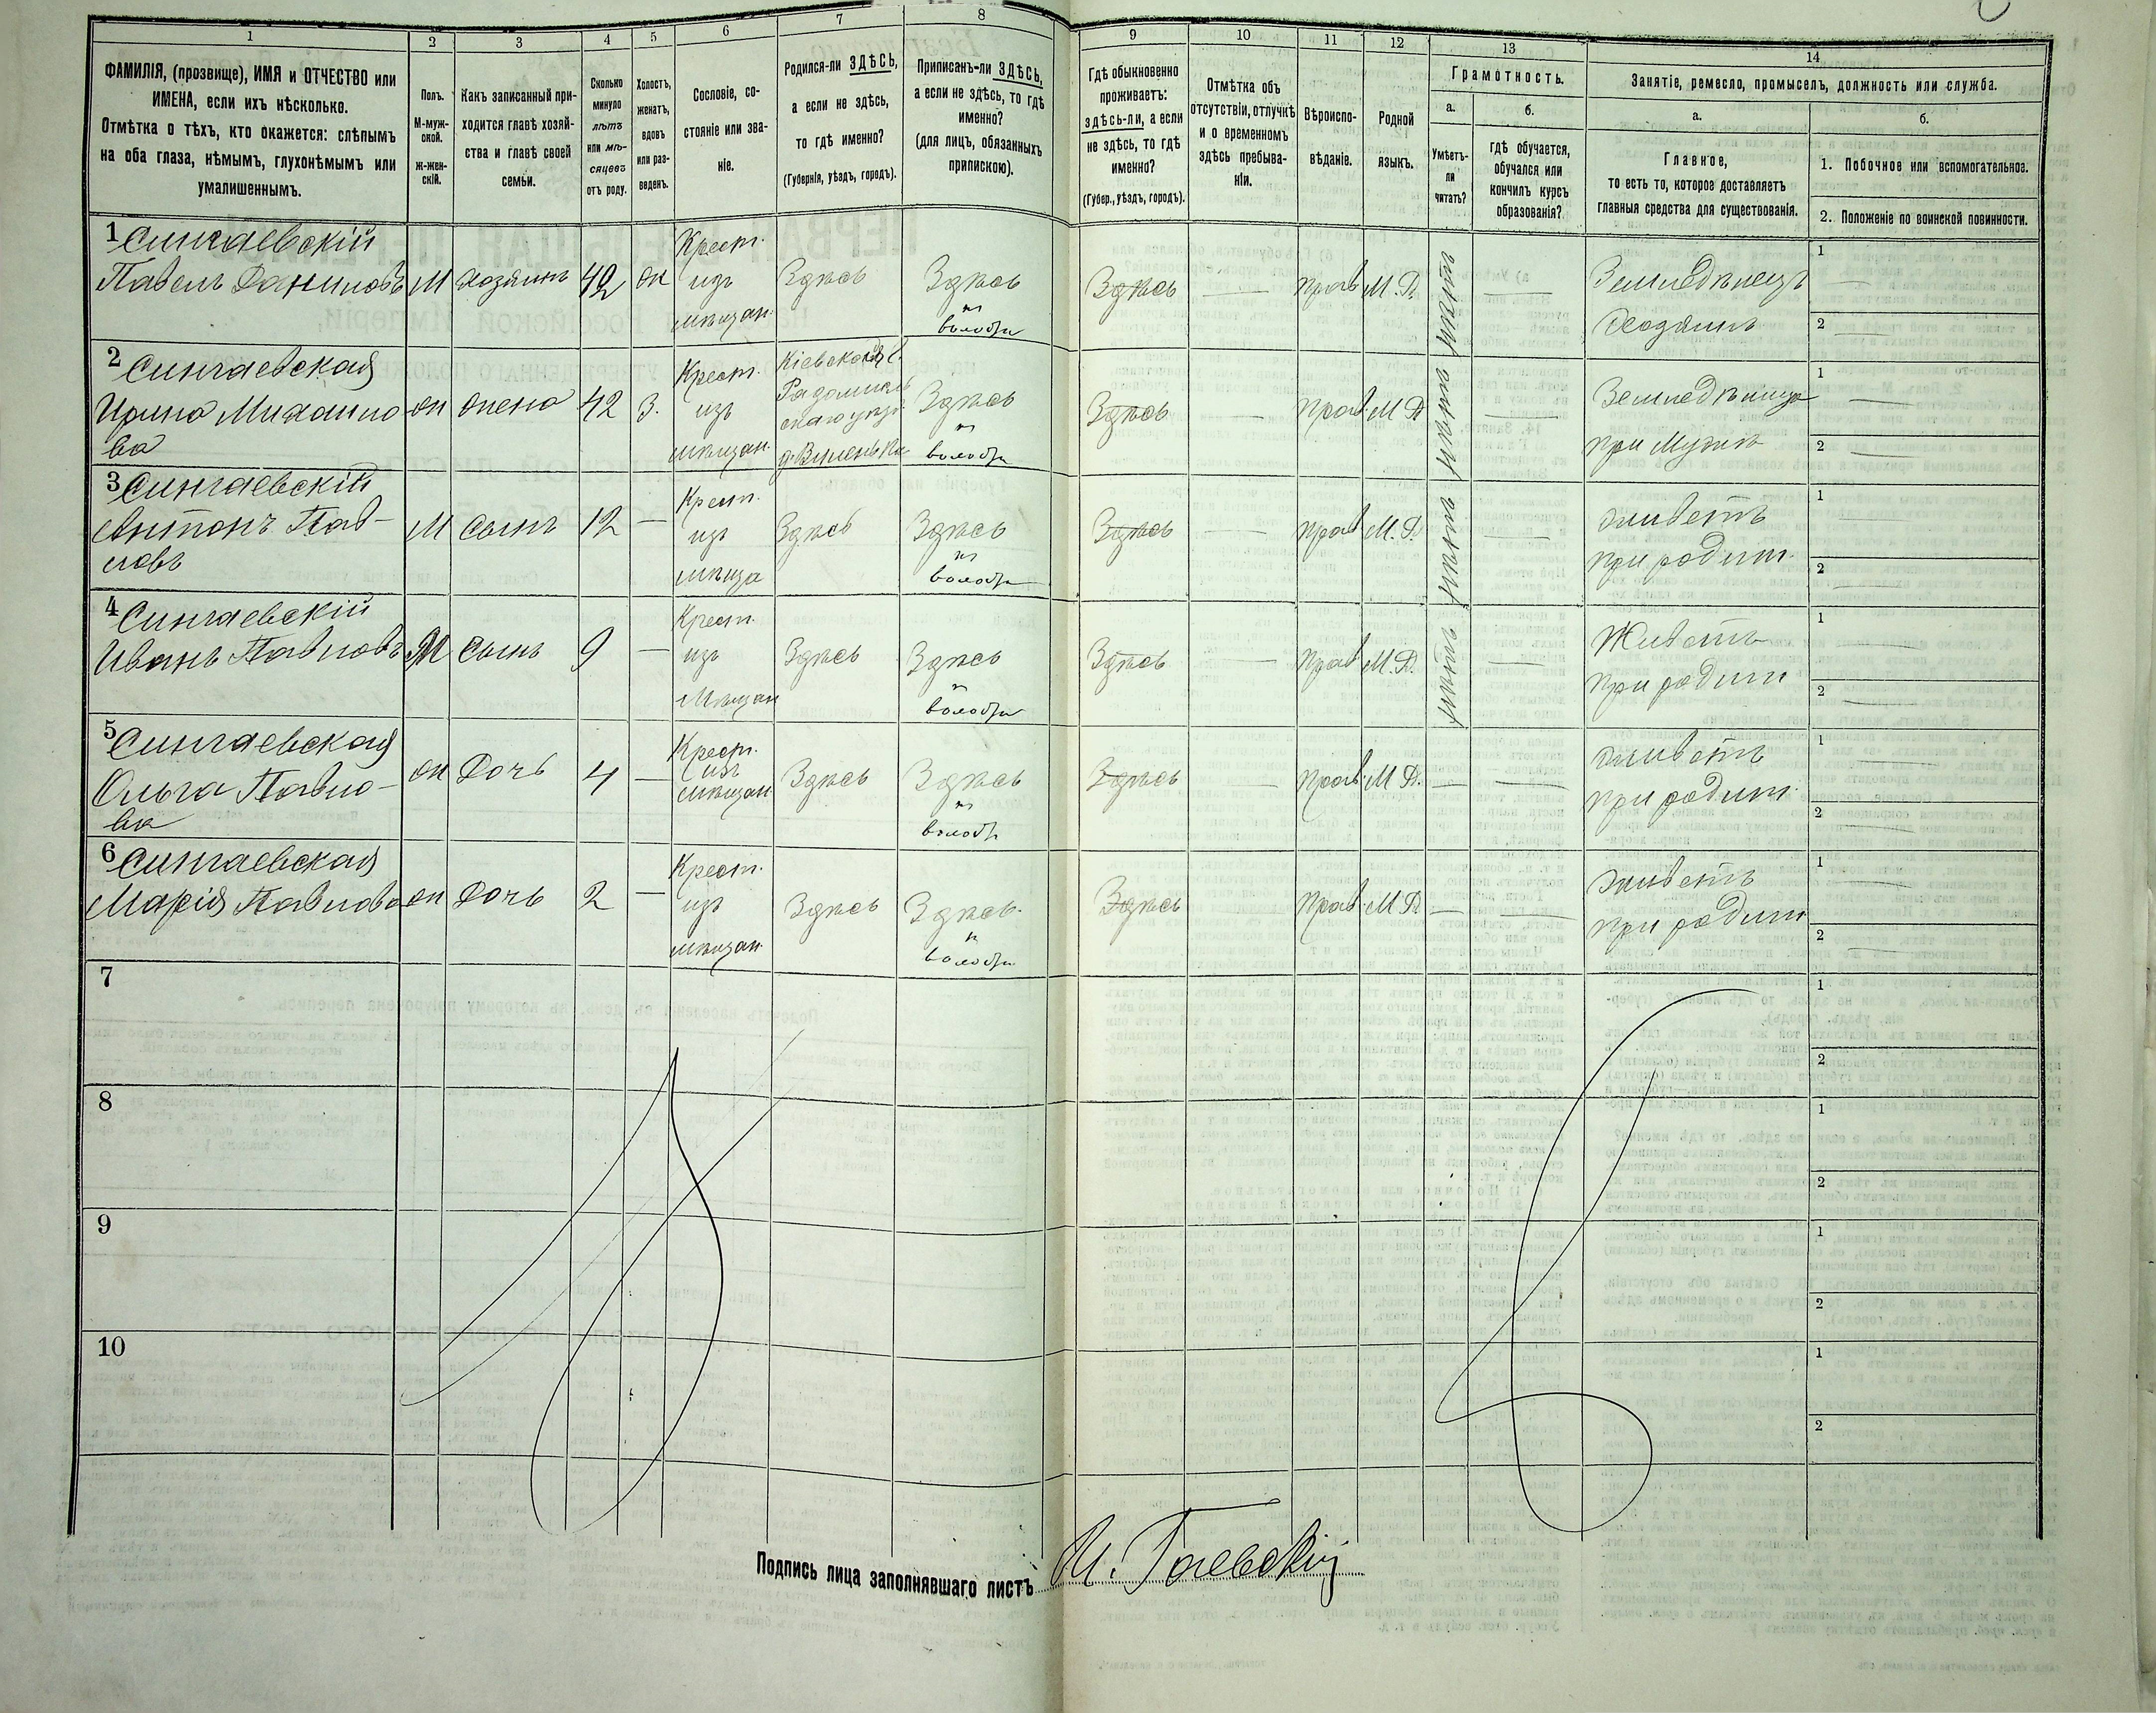 1
2
3
4
5
6
7
8
ФАМИЛІЯ, (прозвище), ИМЯ и ОТЧЕСТВО или
ИМЕНА, если ихъ нѣсколько.
Отмѣтка о тѣхъ, кто окажется: слѣпымъ
на оба глаза, нѣмымъ, глухонѣмымъ или
умалишеннымъ.
Полъ.
М-муж-
ской.
ж-жен-
скій.
Какъ записанный при-
ходится главѣ хозяй-
ства и главѣ своей
семьи.
Сколько
минуло
лѣтъ
или мѣ-
сяцевъ
отъ роду.
Холостъ,
женатъ,
вдовъ
или раз-
веденъ.
Сословіе, со-
стояніе или зва-
ніе.
Родился-ли ЗДѢСЬ,
а если не здѣсь,
то гдѣ именно?
(Губернія, уѣздъ, городъ).
Приписанъ-ли ЗДѢСЬ,
а если не здѣсь, то гдѣ
именно?
(для лицъ, обязанныхъ
припискою).
9
10
11
12
13
14
Гдѣ обыкновенно
проживаетъ:
здѣсь-ли, а если
не здѣсь, то гдѣ
именно?
(Губер., уѣздъ, городъ).
Отмѣтка объ
отсутствіи, отлучкѣ
и о временномъ
здѣсь пребыва-
ніи.
Вѣроиспо-
вѣданіе.
Родной
языкъ.
Грамотность.
а.
Умѣетъ-
ли
читать?
б.
гдѣ обучается,
обучался или
кончилъ курсъ
образованія?
Занятіе, ремесло, промыселъ, должность или служба.
а.
Главное,
то есть то, которое доставляетъ
главныя средства для существованія.
б.
1. Побочное или вспомогательное.
2. Положеніе по воинской повинности.
1 Сингаевскій
Павелъ Даниловъ
М
хозяинъ
42
ж
Крест.
изъ
мѣщан.
Здѣсь
Здѣсь
Здѣсь
—
прав
М. Р.
—
Земледѣлецъ
Хозяинъ
1 —
2 —
2 Сингаевская
Ирина Михаило
ва
ж
жена
42
З.
Крест.
изъ
мѣщан.
Кіевской г.
Здѣсь
Здѣсь
—
прав
М Р
—
при Мужѣ
1 —
2 —
3 Сингаевскій
Антонъ Пав-
ловъ
М
сынъ
12
—
Крест.
изъ
мѣща
Здѣсь
Здѣсь
Здѣсь
—
прав
М. Р.
—
живетъ
при родит.
1 —
2 —
4 Сингаевскій
Иванъ Павловъ
М
сынъ
9
—
Крест.
изъ
Мѣщан
Здѣсь
Здѣсь
Здѣсь
—
прав
М. Р.
—
Живетъ
при родит
1 —
2 —
5 Сингаевская
Ольга Павло-
ва
ж
Дочь
4
—
Крест.
изъ
мѣщан
Здѣсь
Здѣсь
Здѣсь
—
прав
М Р.
—
—
живетъ
при родит.
1 —
2 —
6 Сингаевская
Марія Павлова
ж
Дочь
2
—
Крест.
изъ
мѣщан.
Здѣсь
Здѣсь
Здѣсь
прав
М Р
—
—
живетъ
при родит
1 —
2 —
7
1
2
8
1
2
9
1
2
10
1
2
Подпись лица заполнявшаго листъ И. Гаевскій